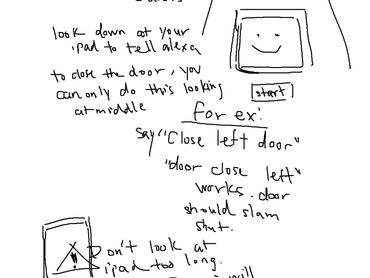 look down at your
ipad to tell alexa
to close the door, you
can only do this looking
at middle
start
for ex:
Say "Close left door"
"door close left"
works. door
should slam
shut.
! Don't look at
ipad too long.
will